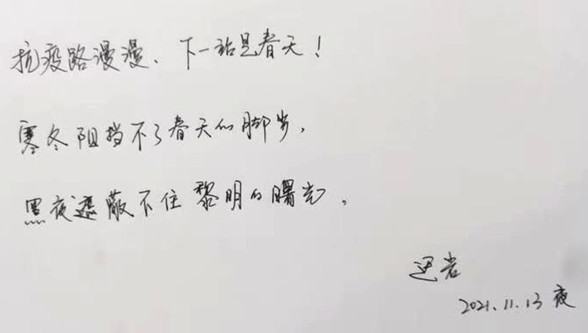 抗疫路漫漫、下一站是春天！
寒冬阻挡不了春天的脚步，
黑夜遮蔽不住黎明的曙光。
迅岩
2021.11.13 夜